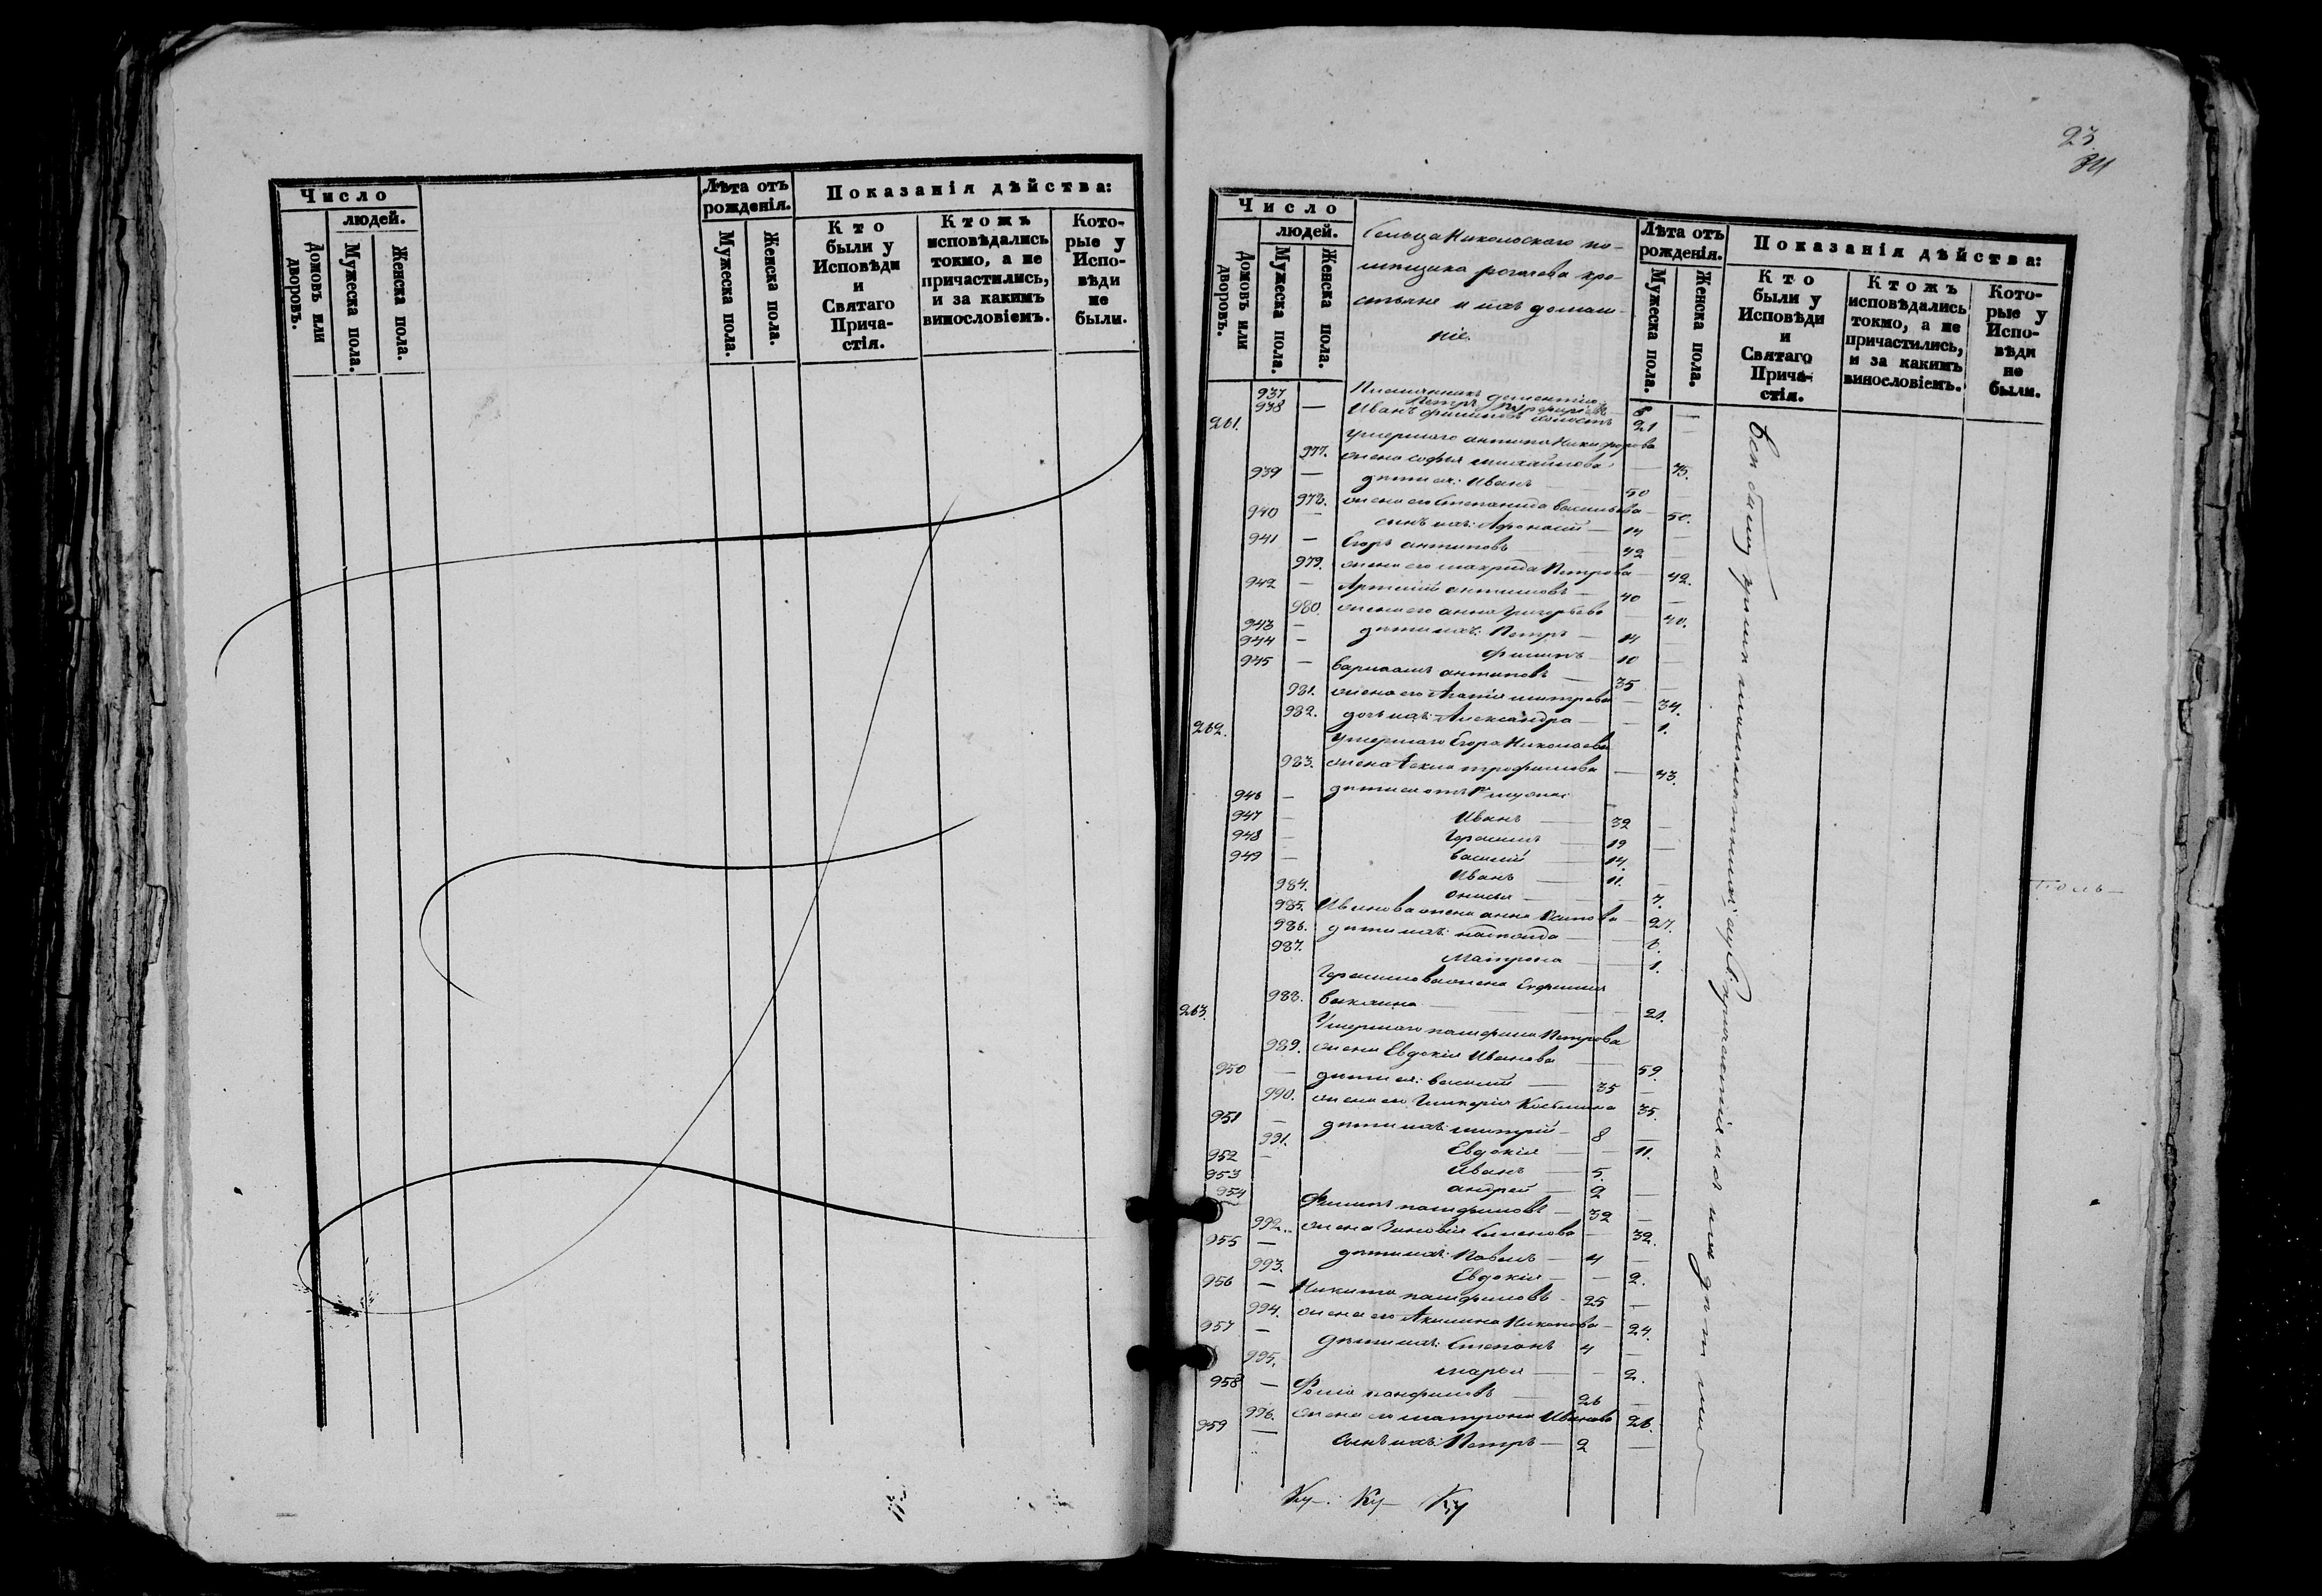 Число
людей.
Домовъ или дворовъ.
Мужеска пола.
Женска пола.
Лѣта отъ рожденія.
Мужеска пола.
Женска пола.
Показанія дѣйства:
Кто были у Исповѣди и Святаго Прича-стія.
Ктожъ исповѣдались токмо, а не причастились, и за какимъ винословіемъ.
Кото-рые у Испо-вѣди не были.
23
Число
людей.
Домовъ или дворовъ.
Мужеска пола.
Женска пола.
Сельца Никольскаго по-
мѣщика рогачева кре-
стьяне и ихъ домаш-
ніе.
Лѣта отъ рожденія.
Мужеска пола.
Женска пола.
Показанія дѣйства:
Кто были у Исповѣди и Святаго Прича-стія.
Ктожъ исповѣдались токмо, а не причастились, и за какимъ винословіемъ.
Кото-рые у Испо-вѣди не были.
937
Петръ 8 —
938 — Иванъ филиповъ 21 —
261. Умершаго антипа Никифорова
977. жена софья михайлова — 75.
939 — дѣти ея: Иванъ 50 —
978. жена его Степанида васильева — 50.
940 — сынъ ихъ: Афонасій — 14 —
941 — Егоръ антиповъ 42 —
979. жена его макрида Петрова — 42.
942 — Артемій антиповъ — 40 —
980. жена его анна Григорьева — 40.
943 — дѣти ихъ: Петръ — 14 —
944 — Филипъ — 10 —
945 — Варлаамъ антиповъ — 35 —
981. жена его Агапія митрева — 34.
982. дочь ихъ: Александра — — 1.
262. Умершаго Егора Николаева
983. жена Фекла трофимова — 43.
946 — дѣти
947 — Иванъ — 32 —
948 — Герасимъ — 19 —
949 — Василій — 14. —
Иванъ — 11. —
984. Онисья — — 7.
985. Иванова жена анна Осипова — 27.
986. дѣти ихъ: — 6.
987. Матрона — — 1.
Герасимова жена Евфимія
988. — — 21.
263. Умершаго памфила Петрова
989. жена Евдокія Иванова — 59.
950 — дѣти ея: василій — 35 —
990. жена его Гликерія Козьмина 35.
951 — дѣти ихъ: митрій — 8 —
991. Евдокія — — 11.
952 — Иванъ — 5. —
953 андрей — 2 —
954 Филипъ памфиловъ — 32 —
992. жена Зиновія Семенова — 32.
955 — дѣти ихъ: Павелъ — 4 —
993. Евдокія — — 2.
956 — Никита памфиловъ 25 —
994. жена его Акилина Никонова — 24.
957 — дѣти ихъ: Степанъ 4 —
995. марья — — 2.
958 — Фома памфиловъ — 26 —
996. жена его матрона Иванова 26.
959 — сынъ ихъ: Петръ — 2 —